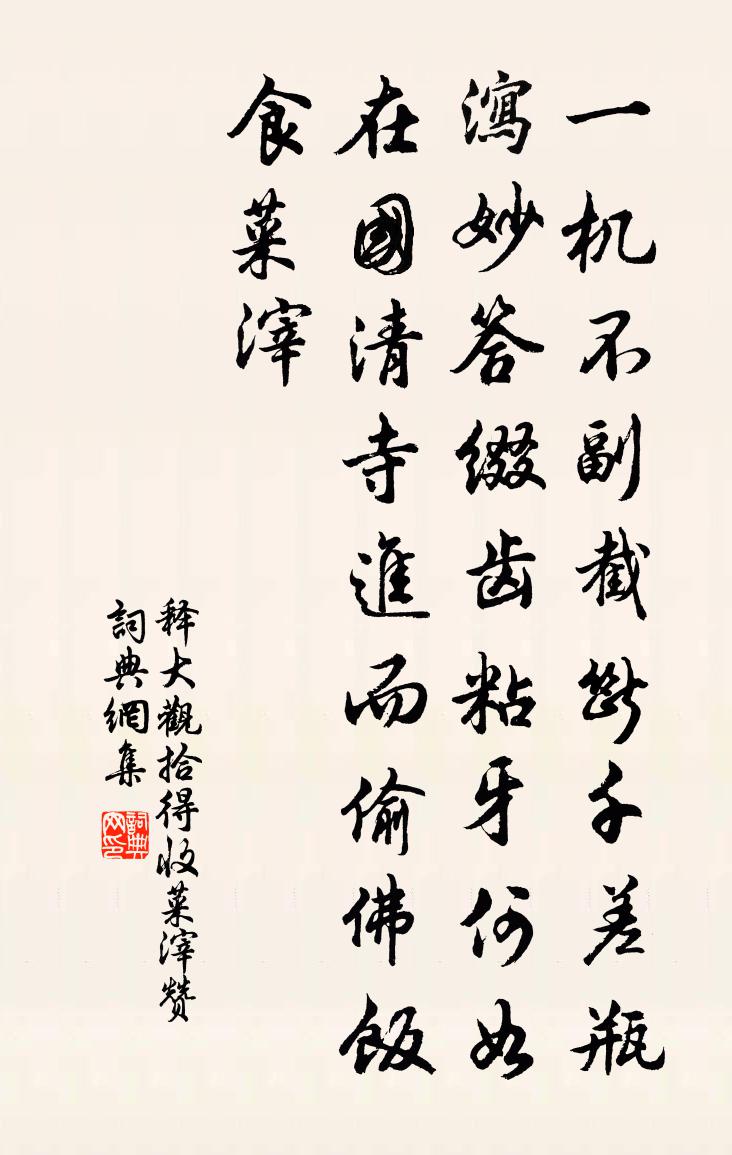 一机不副截断千差瓶
瀉妙答缀齿粘牙何如
在國清寺進而偷佛飯
食菜滓
释大觀拾得收菜滓赞
詞典網集
詞典网印